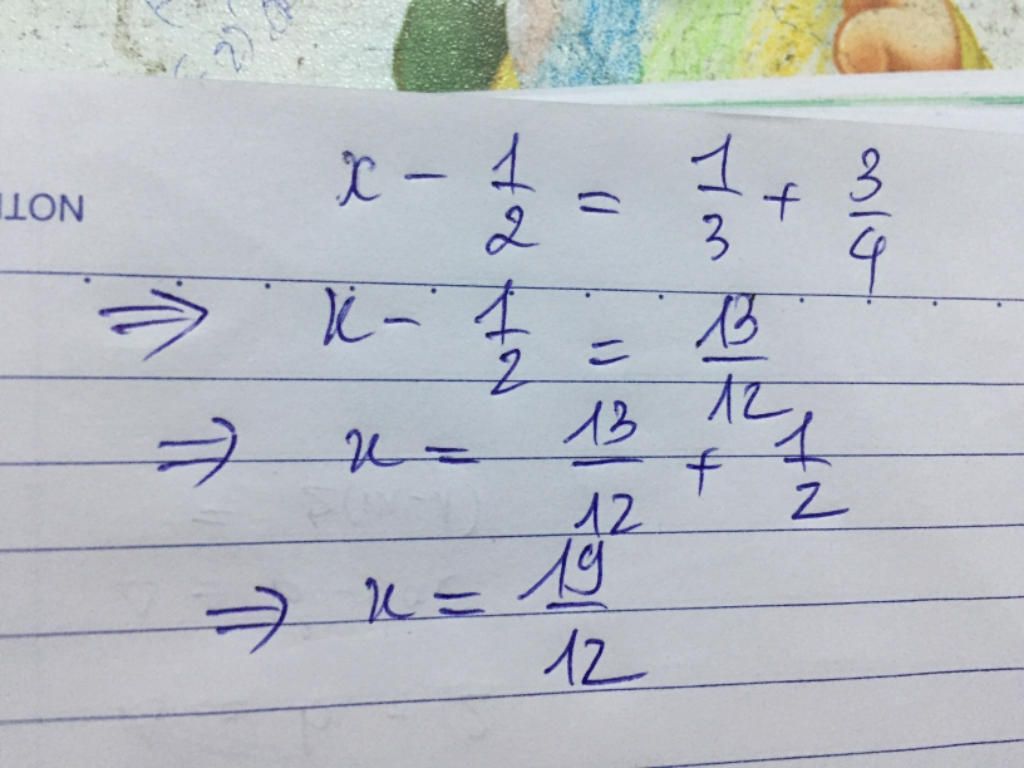 NOT
x - 1/2 = 1/3 + 3/4
⇒ x - 1/2 = 13/12
⇒ x = 13/12 + 1/2
⇒ x = 19/12